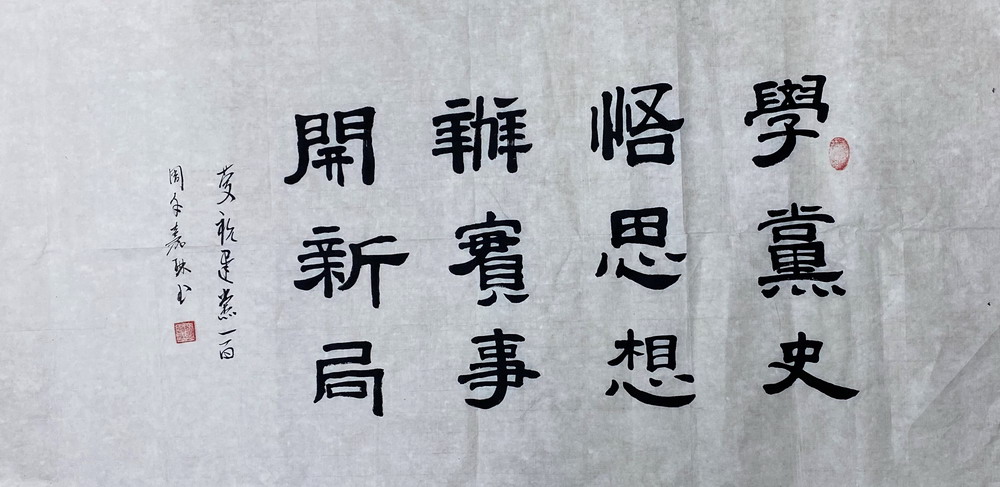 學黨史
悟思想
辦實事
開新局
慶祝建黨一百
周年嘉珠书